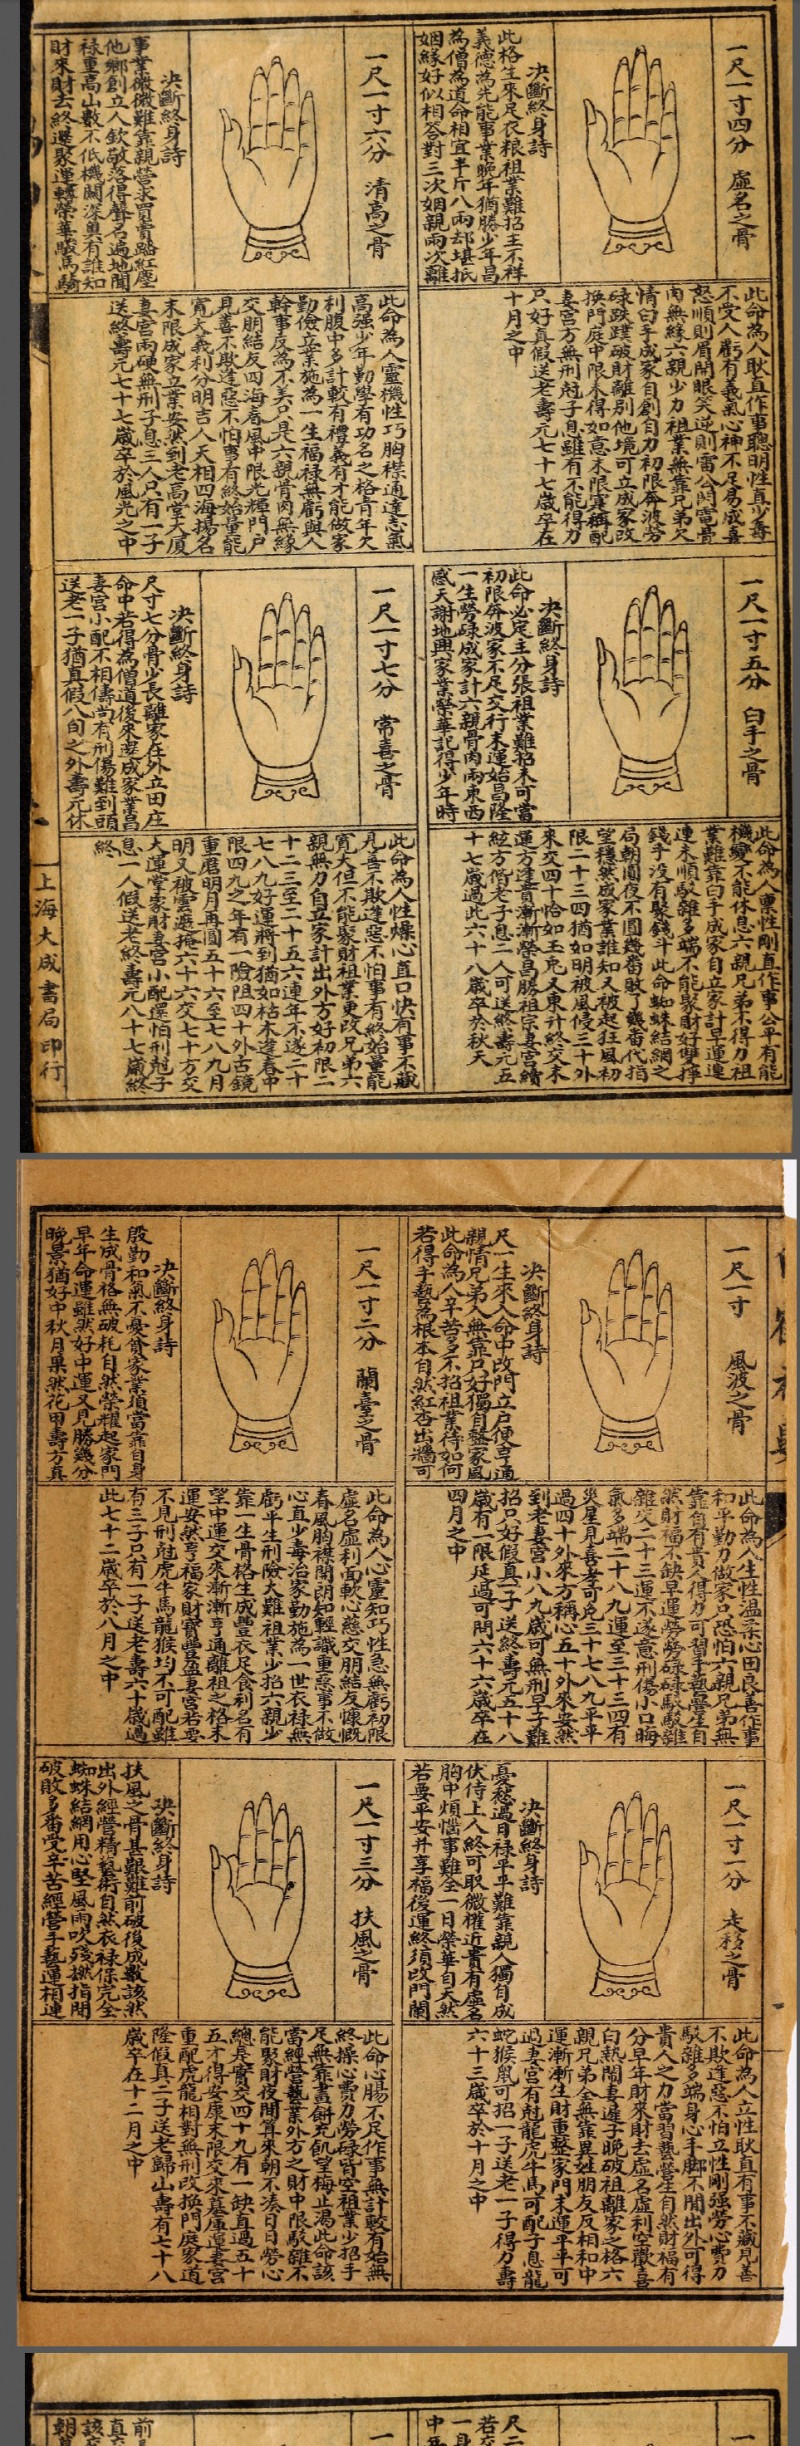 一尺一寸四分 虛名之骨
決斷終身詩
此格生來足衣粮祖業難招主不祥
義德為先能事業晚年猶勝少年昌
為僧為道命相宜半斤八兩却堪抵
姻緣好似相答對三次姻親兩次離
此命為人耿直作事聰明性真少毒
不受人虧有義氣心神不足易成喜
怒順則眉開眼笑逆則雷公閃電骨
肉無緣六親少力祖業無靠兄弟欠
情白手成家自創自力初限奔波勞
碌跌蹼破財離別他境可立成家改
換門庭中限未得如意末限寔稱配
妻宮方無刑尅子息雖有不能得力
只好真假送老壽元七十七歲卒在
十月之中
一尺一寸五分 白手之骨
決斷終身詩
此命必定主分張祖業難招未可當
初限奔波家不足交行末運始昌隆
一生勞碌成家計六親骨肉兩東西
感天謝地興家業榮華記得少年時
此命為人稟性剛直作事公平有能
機變不能休息六親兄弟不得力祖
業難靠白手成家自立家計早運迍
連未順駁雜多端不能聚財好雙擇
錢手沒有聚錢斗此命蜘蛛結網之
局朝圓夜不圓幾番敗了幾番代指
望穩然成家業誰知又被起狂風初
限二十三四猶如明被風侵三十外
來交四十恰如玉兎又東升終交末
運方逢貴漸漸榮昌勝祖宗妻宮續
絃方偕老子息二人可送終壽元五
十七歲過此六十八歲卒於秋天
一尺一寸六分 清高之骨
決斷終身詩
事業微微難靠親營求買賣踏紅塵
他鄉創立人欽敬落得聲名遍地聞
祿重高山數不低機關深奥有誰知
財來財去終還聚運轉榮華駿馬騎
此命為人靈機性巧胸襟通達志氣
高强少年勤學有功名之格青年欠
利腹中多計較有禮義有才能做家
勤儉立業施為一生福祿無虧與人
幹事反為不美只是六親骨肉無緣
交朋結友四海春風中限光輝門戶
見善不欺逢惡不怕事有終始量能
寬大義利分明吉人天相四海揚名
末限成家立業安然到老高堂大厦
妻宮兩硬無刑子息三人只有一子
送終壽元七十七歲卒於風光之中
一尺一寸七分 常喜之骨
決斷終身詩
尺寸七分骨少長離家在外立田庄
命中若得為僧道後來定成家業昌
妻宮小配不相儔尚有刑傷難到頭
送老一子猶真假八旬之外壽元休
此命為人性燥心直口快有事不藏
見善不欺逢惡不怕事有終始量能
寬大但不能聚財祖業更改兄弟六
親無力自立家計出外方好初限二
十二三至二十五六連年不遂二十
七八九好運將到猶如枯木逢春中
限四九之年有一險阻四十外古鏡
重磨明月再圓五十六至七八九月
明又被雲遮掩六十六交七十方交
大運掌家財妻宮小配還怕刑尅子
息一人假送老終壽元八十七歲終
終
上海大成書局印行
一尺一寸 風波之骨
決斷終身詩
尺一生來入命中改門立戶便亨通
親情兄弟入無靠只好獨自整家風
此命為人辛苦多不招祖業待如何
若得手藝為根本自然紅杏出牆可
此命為人生性温柔心田良善作事
和平勤力做家只恐怕六親兄弟無
靠自有貴人得力可習手藝營生自
然財福不缺早運勞勞碌碌駁駁雜
雜交二十三運不遂意刑傷小口晦
氣多端二十八九運至三十三四有
災星見喜者可免三十七八九平平
過四十外來方稱心五十外來安然
到老妻宮小八九歲可無刑早子難
招只好假真一子送終壽元五十八
歲有一限延過可問六十六歲卒在
四月之中
一尺一寸一分 走移之骨
決斷終身詩
憂愁過日祿平平難靠親人獨自成
伏侍上人終可取微權近貴有虛名
胸中煩惱事難全一日榮華自天然
若要平安并享福後運終須改門闌
此命為人立性耿直有事不藏見善
不欺逢惡不怕立性剛强勞心費力
駁雜多端身心手脚不閒出外可得
貴人之力當習藝營生自然財福有
分早年財來財去虛名虛利空歡喜
白熱鬧妻遲子晚破祖離家之格六
親兄弟全無靠異姓朋友反相和中
運漸漸生財重整家門末運平平可
過妻宮有尅龍虎牛馬可配子息龍
蛇猴鼠可招一子送老一子得力壽
六十三歲卒於十月之中
一尺一寸二分 蘭臺之骨
決斷終身詩
殷勤和氣不憂貧家業須當靠自身
生成骨格無破耗自然榮耀起家門
早年命運雖然好中運又見勝幾分
晚景猶好中秋月果然花甲壽方真
此命為人心靈知巧性急無虧初限
虛名虛利面軟心慈交朋結友慷慨
春風胸襟開朗知輕識重惡事不做
心直少毒治家勤施為一世衣祿無
虧平生刑險大難祖業少招六親少
靠一生骨格生成豐衣足食利名有
望中運交來漸漸亨通離祖之格末
運安然亨福家財寶豐盈妻宮若要
不見刑尅虎牛馬龍猴均不可配雖
有三子只有一子送老壽六十歲過
此七十二歲卒於八月之中
一尺一寸三分 扶風之骨
決斷終身詩
扶風之骨甚艱難前破後成數該然
出外經營精藝術自然衣祿保完全
蜘蛛結網用心堅風雨吹殘撚指間
破敗多番受辛苦經營手藝運相連
此命心腸不足作事無計較有始無
終操心費力勞碌皆空祖業少招手
足無靠畫餅充飢望梅止渴此命該
當經營藝業外方之財中限駁雜不
能聚財夜間算來朝不湊日日勞心
總是實交四十九有一缺直過五十
五才得安康末限交來墓庫運妻宮
重配虎龍相對無刑改換門庭家道
隆假真二子送老歸山壽有七十八
歲卒在十二月之中